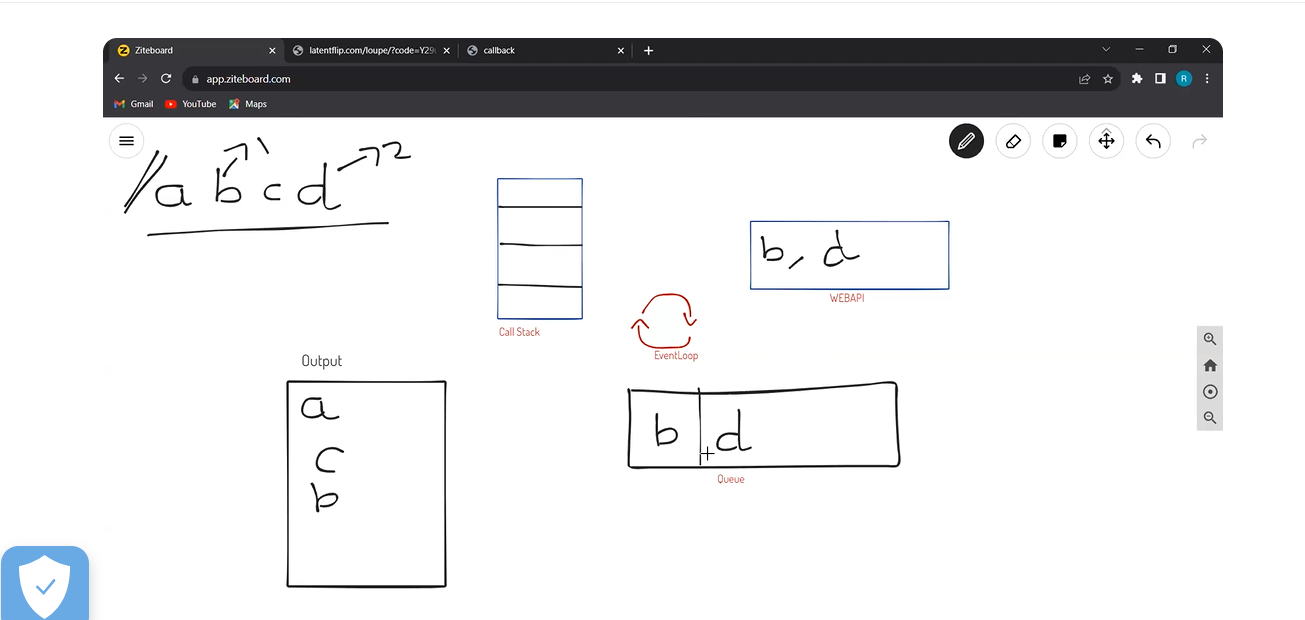 Ziteboard
latentflip.com/loupe/?code=Y29u
callback
app.ziteboard.com
R
Gmail
YouTube
Maps
a b 1 c d 2
b, d
WEBAPI
Call Stack
EventLoop
Output
a
c
b
b d
Queue